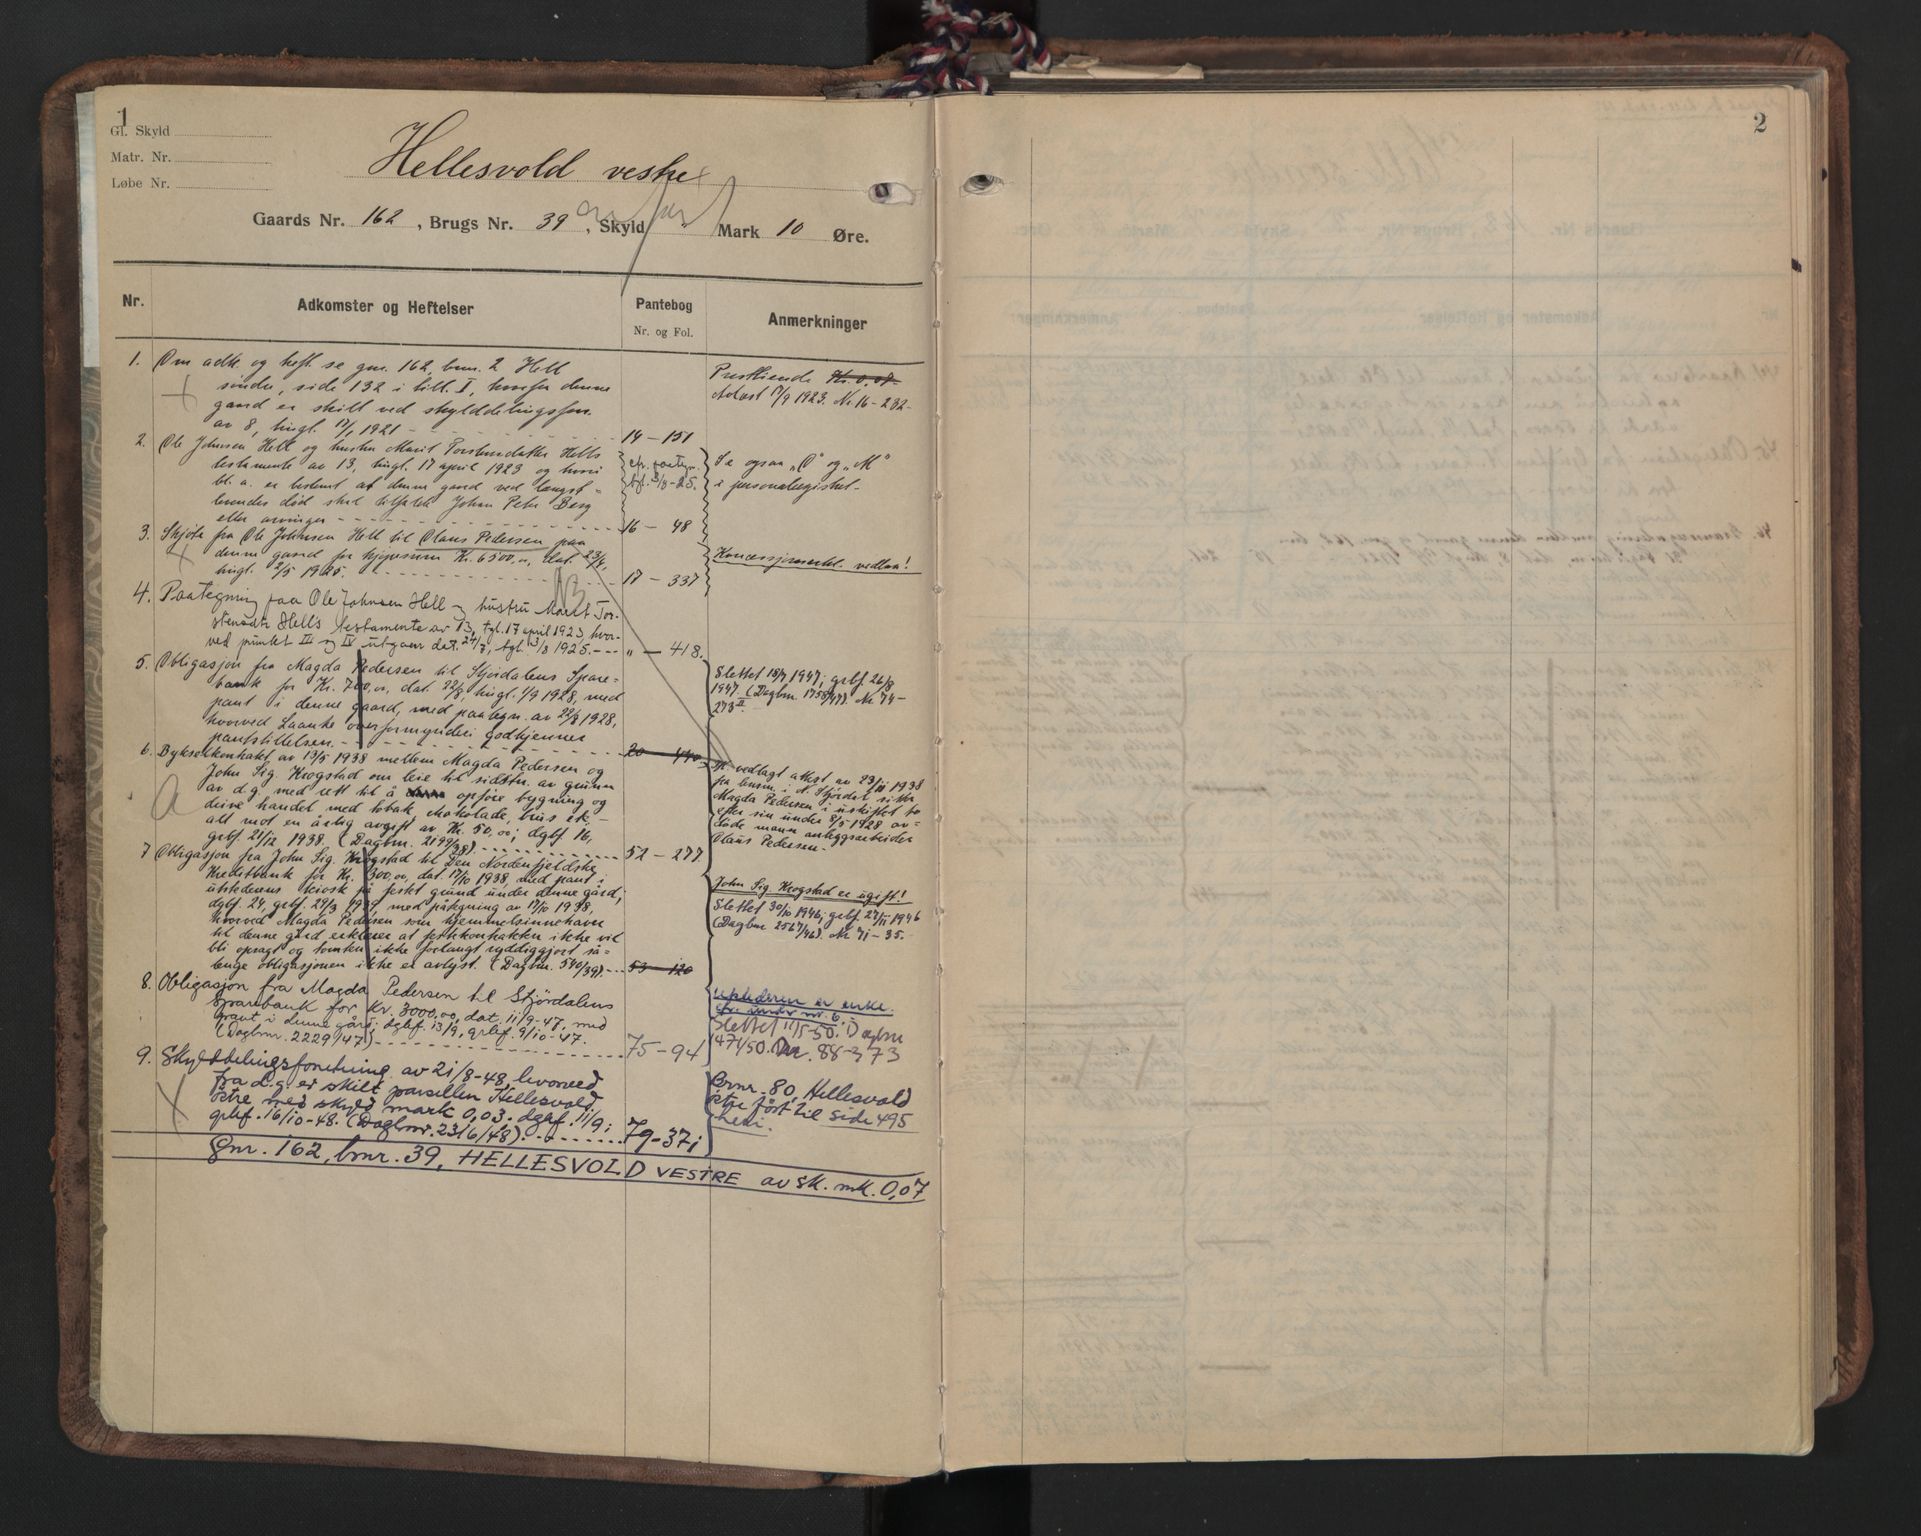 1
2
Gl. Skyld
Matr. Nr.
Løbe Nr.
Hellesvold vestre
Gaards Nr. 162, Brugs Nr. 39, Skyld Mark 10 Øre.
Nr. Adkomster og Heftelser Pantebog Anmerkninger
Nr. og Fol.
1. Om adk. og heft. se gnr. 162, bnr. 2 Hell
søndre, side 132 i bill. I, hvorfra denne
gaard er skilt ved skylddelingsforr.
av 8, tingl. 17/1 1921 - 14 - 151
Presttiende Kr. 0,07
Avløst 17/9 1923. Nr. 16 - 232 -
2. Ole Johnsen Hell og hustru Marit Torstensdatter Hells
testamente av 13, tingl. 17 april 1923 og hvori
bl. a. er bestemt at denne gaard ved længst=
levendes død skal tilfalde Johan Peter Berg
eller arvinger - 16 - 48
cfr. paategn.
tgl. 3/8 - 25.
Se ogsaa "O" og "M"
i personalregistret -
3. Skjøte fra Ole Johnsen Hell til Olaus Pedersen paa
denne gaard for kjøpesum Kr. 6500,00, dat. 23/4,
tingl. 2/5 1925. - 17 - 337
Koncessjonserkl. vedlaa!
4. Paategning paa Ole Johnsen Hell og hustru Marit Tor-
stensdtr Hells testamente av 13, tgl. 17 april 1923, hvor-
ved punktet III og IV utgaar dat. 24/7, tgl. 13/8 1925. - " - 418.
5. Obligasjon fra Magda Pedersen til Stjørdalens Spare=
bank for Kr. 700,00, dat. 22/8, tingl. 1/9 1928, med
pant i denne gaard, med paategn. av 22/8 1928,
hvorved Laanke overformynderi godkjenner
pantstillelsen. - 20 - 440
Slettet 18/7 1947; grbf. 26/8
1947. (Dagbnr. 1758/47). Nr. 74 -
273 II.
6. Bykselkontrakt av 13/5 1938 mellem Magda Pedersen og
John Sig. Krogstad om leie til sidstn. av grunn
av d. g. med rett til å opføre bygning og
drive handel med tobak, chokolade, brus etc -
alt mot en årlig avgift av Kr. 50,00; dgbf. 16,
grbf. 21/12 1938. (Dagbnr. 2199/38) - 52 - 277
vedlagt attest av 23/11 1938
fra lensm. i N. Stjørdal sitter
Magda Pedersen i uskiftet bo
efter sin under 8/5 1928 av=
døde mann anleggsarbeider
Olaus Pedersen. -
7 Obligasjon fra John Sig. Krogstad til Den Nordenfjeldske
Kreditbank for Kr. 300,00, dat. 17/10 1938, med pant i
utstederens kiosk på festet grunn under denne gård;
dgbf. 24, grbf. 29/3 1939 med påtegning av 17/10 1938,
hvorved Magda Pedersen som hjemmelsinnehaver
til denne gård erklærer at festekontrakten ikke vil
bli opsagt og tomten ikke forlangt ryddiggjort så=
lenge obligasjonen ikke er avlyst. (Dagbnr. 540/39). - 53 - 120
John Sig. Krogstad er ugift!
Slettet 30/10 1946; grbf. 27/11 1946
(Dagbnr 2567/46). Nr. 71 - 35. -
8. Obligasjon fra Magda Pedersen til Stjördalens
Sparebank for Kr. 3000,00, dat. 11/9-47, med
pant i denne gård; dgbf. 13/9, grbf. 9/10-47.
(Dagbnr. 2229/47) - 75 - 94
Utstederen er enke.
cfr. under nr. 6.
Slettet 11/5-50. Dagbnr
1471/50. Nr. 88-373
9. Skylddelingsforretning av 21/8-48, hvorved
fra d. g. er skilt parsellen Hellesvold
östre med skyld mark 0,03. dgbf. 11/9;
grbf. 16/10-48. (Dagbnr. 2316/48). - 79-371
Bnr. 80, Hellesvold
östre fört til side 495
heri.
Gnr. 162, bnr. 39, HELLESVOLD VESTRE av sk. mk. 0,07